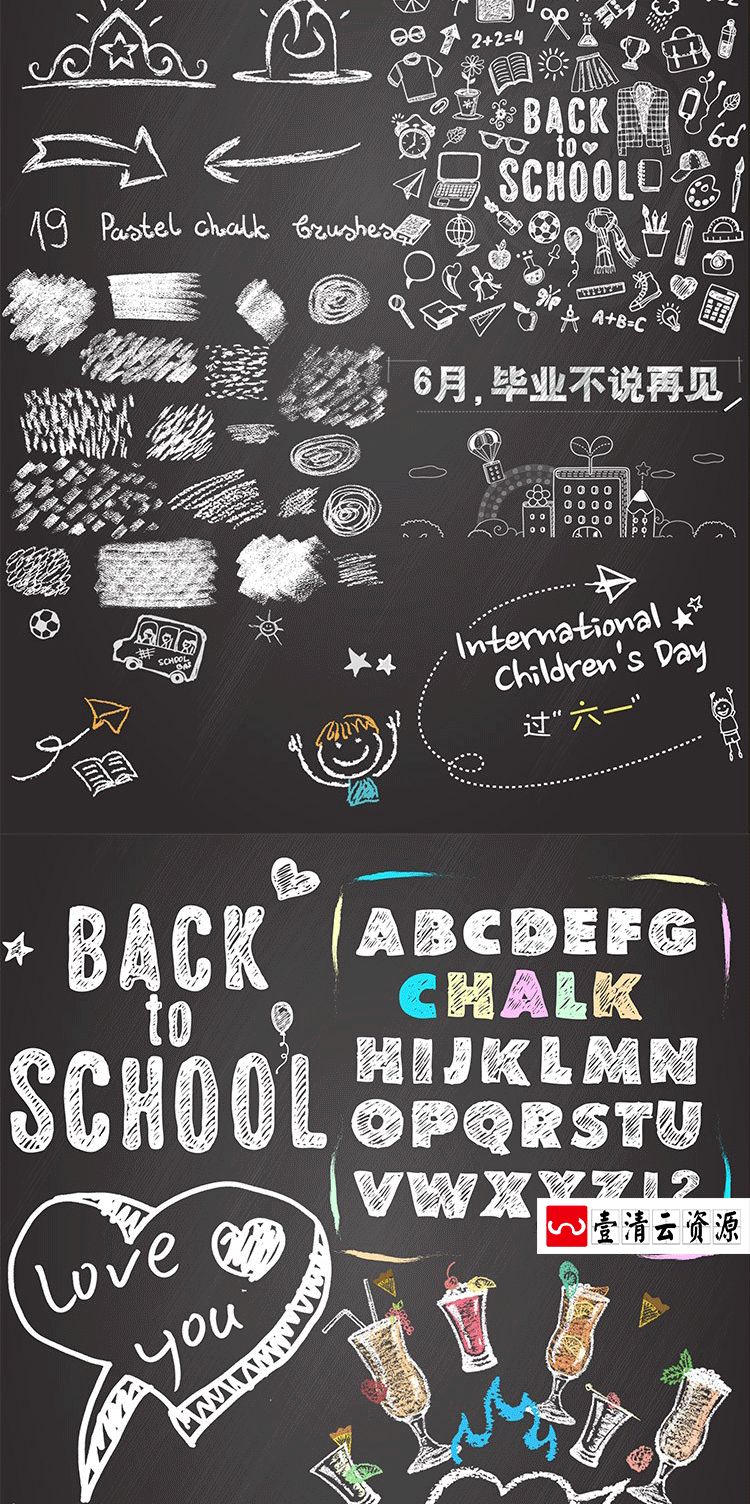 2+2=4
BACK
to
SCHOOL
19 Pastel chalk brushes
A+B=C
6月，毕业不说再见
SCHOOL
BUS
International
Children's Day
过“六一”
BACK
to
SCHOOL
ABCDEFG
CHALK
HIJKLMN
OPQRSTU
VWXYZ!?
壹清云资源
Love
you